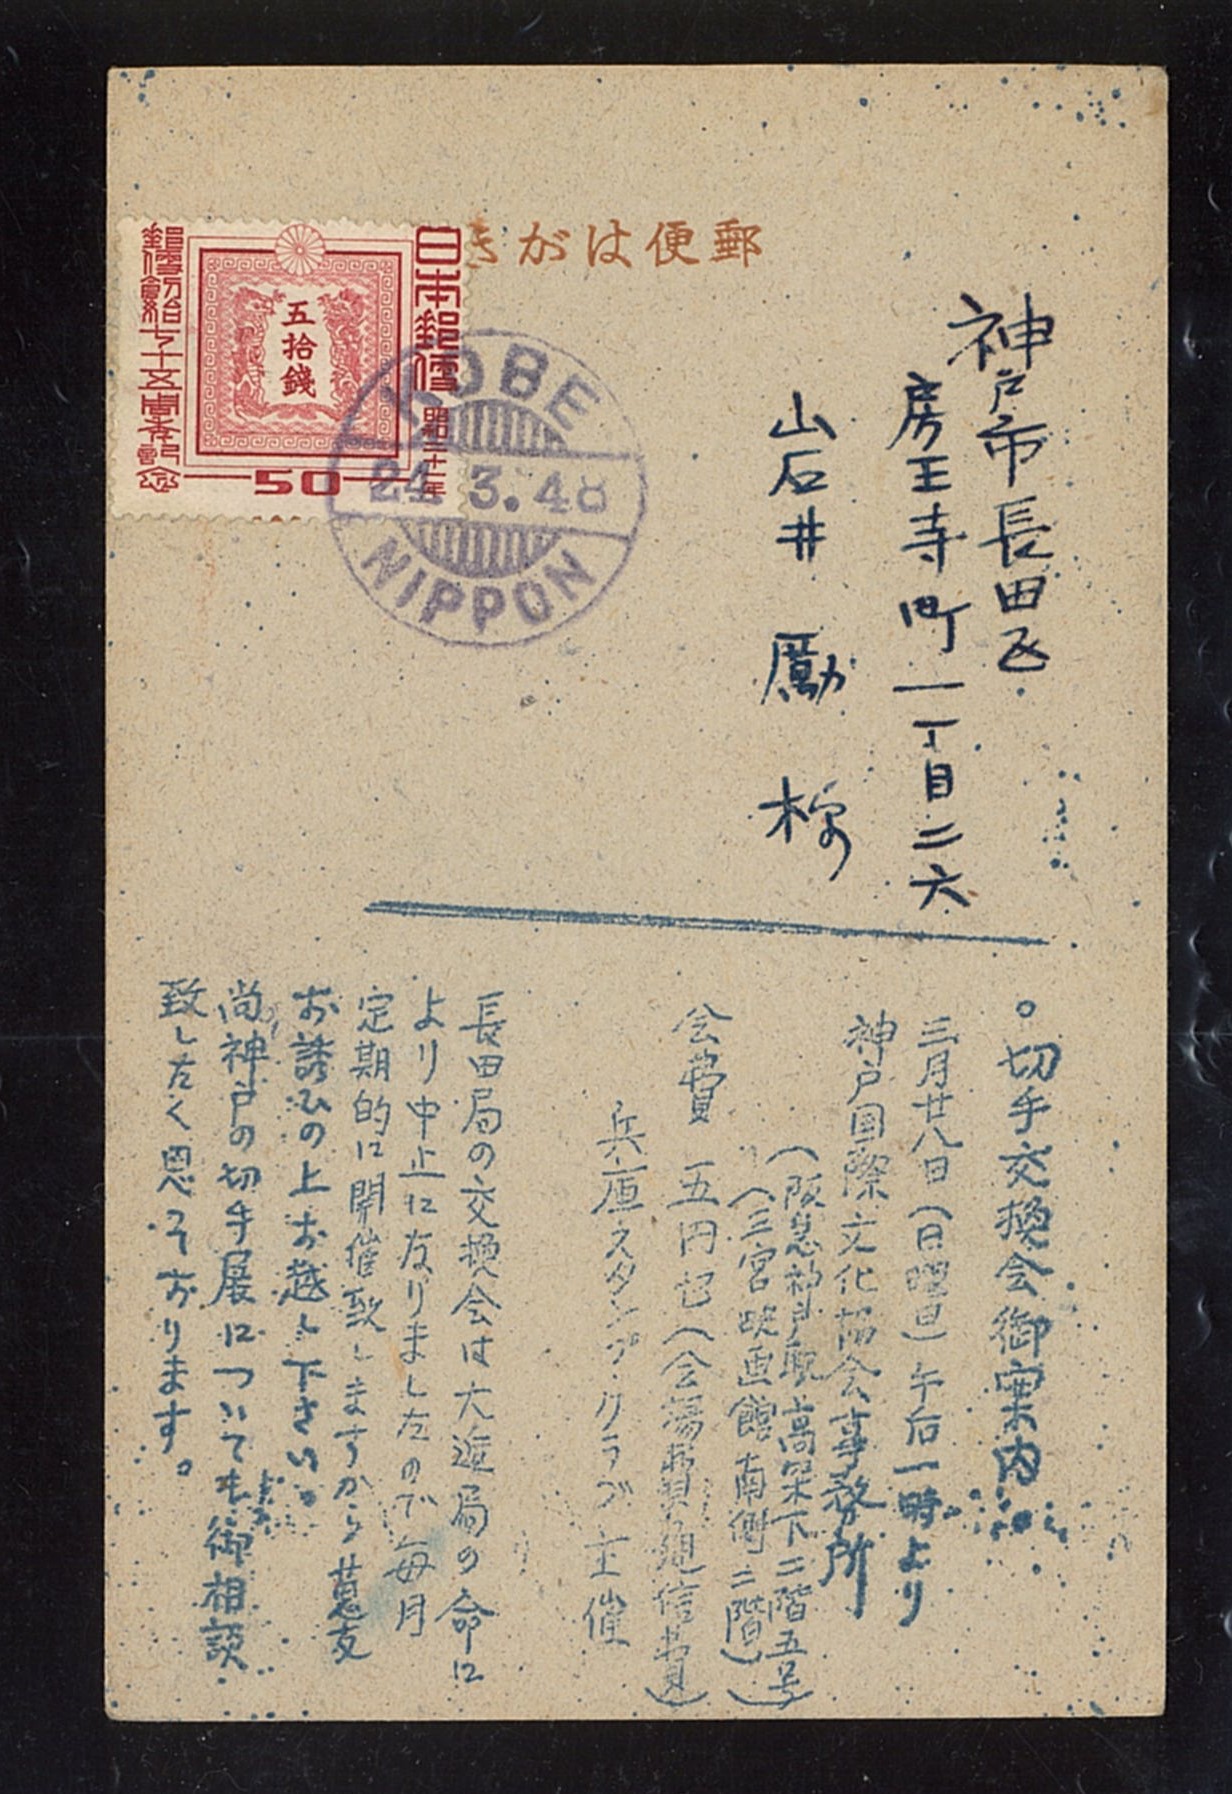 郵便はがき
日本郵便 昭和二十一年
郵便創始七十五周年記念
五拾錢
50
KOBE
24. 3. 48
NIPPON
神戸市長田区
房王寺町一丁目二六
山石井 勵 様
。切手交換会御案内
三月廿八日(日曜日)午后一時より
神戸国際文化協会事務所
(阪急神戸駅高架下二階五号)
(三宮映画館南側二階)
会費 五円也(会場費通信費)
兵庫スタンプ・クラブ主催
長田局の交換会は大逓局の命に
より中止になりましたので毎月
定期的に開催致しますから
お誘ひの上お越し下さい。
尚神戸の切手展についても御相談
致したく思って居ります。